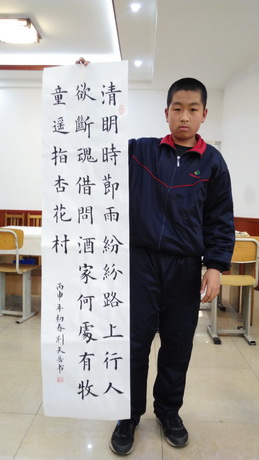 清明時節雨紛紛路上行人
欲斷魂借問酒家何處有牧
童遥指杏花村
丙申年初春 天 书